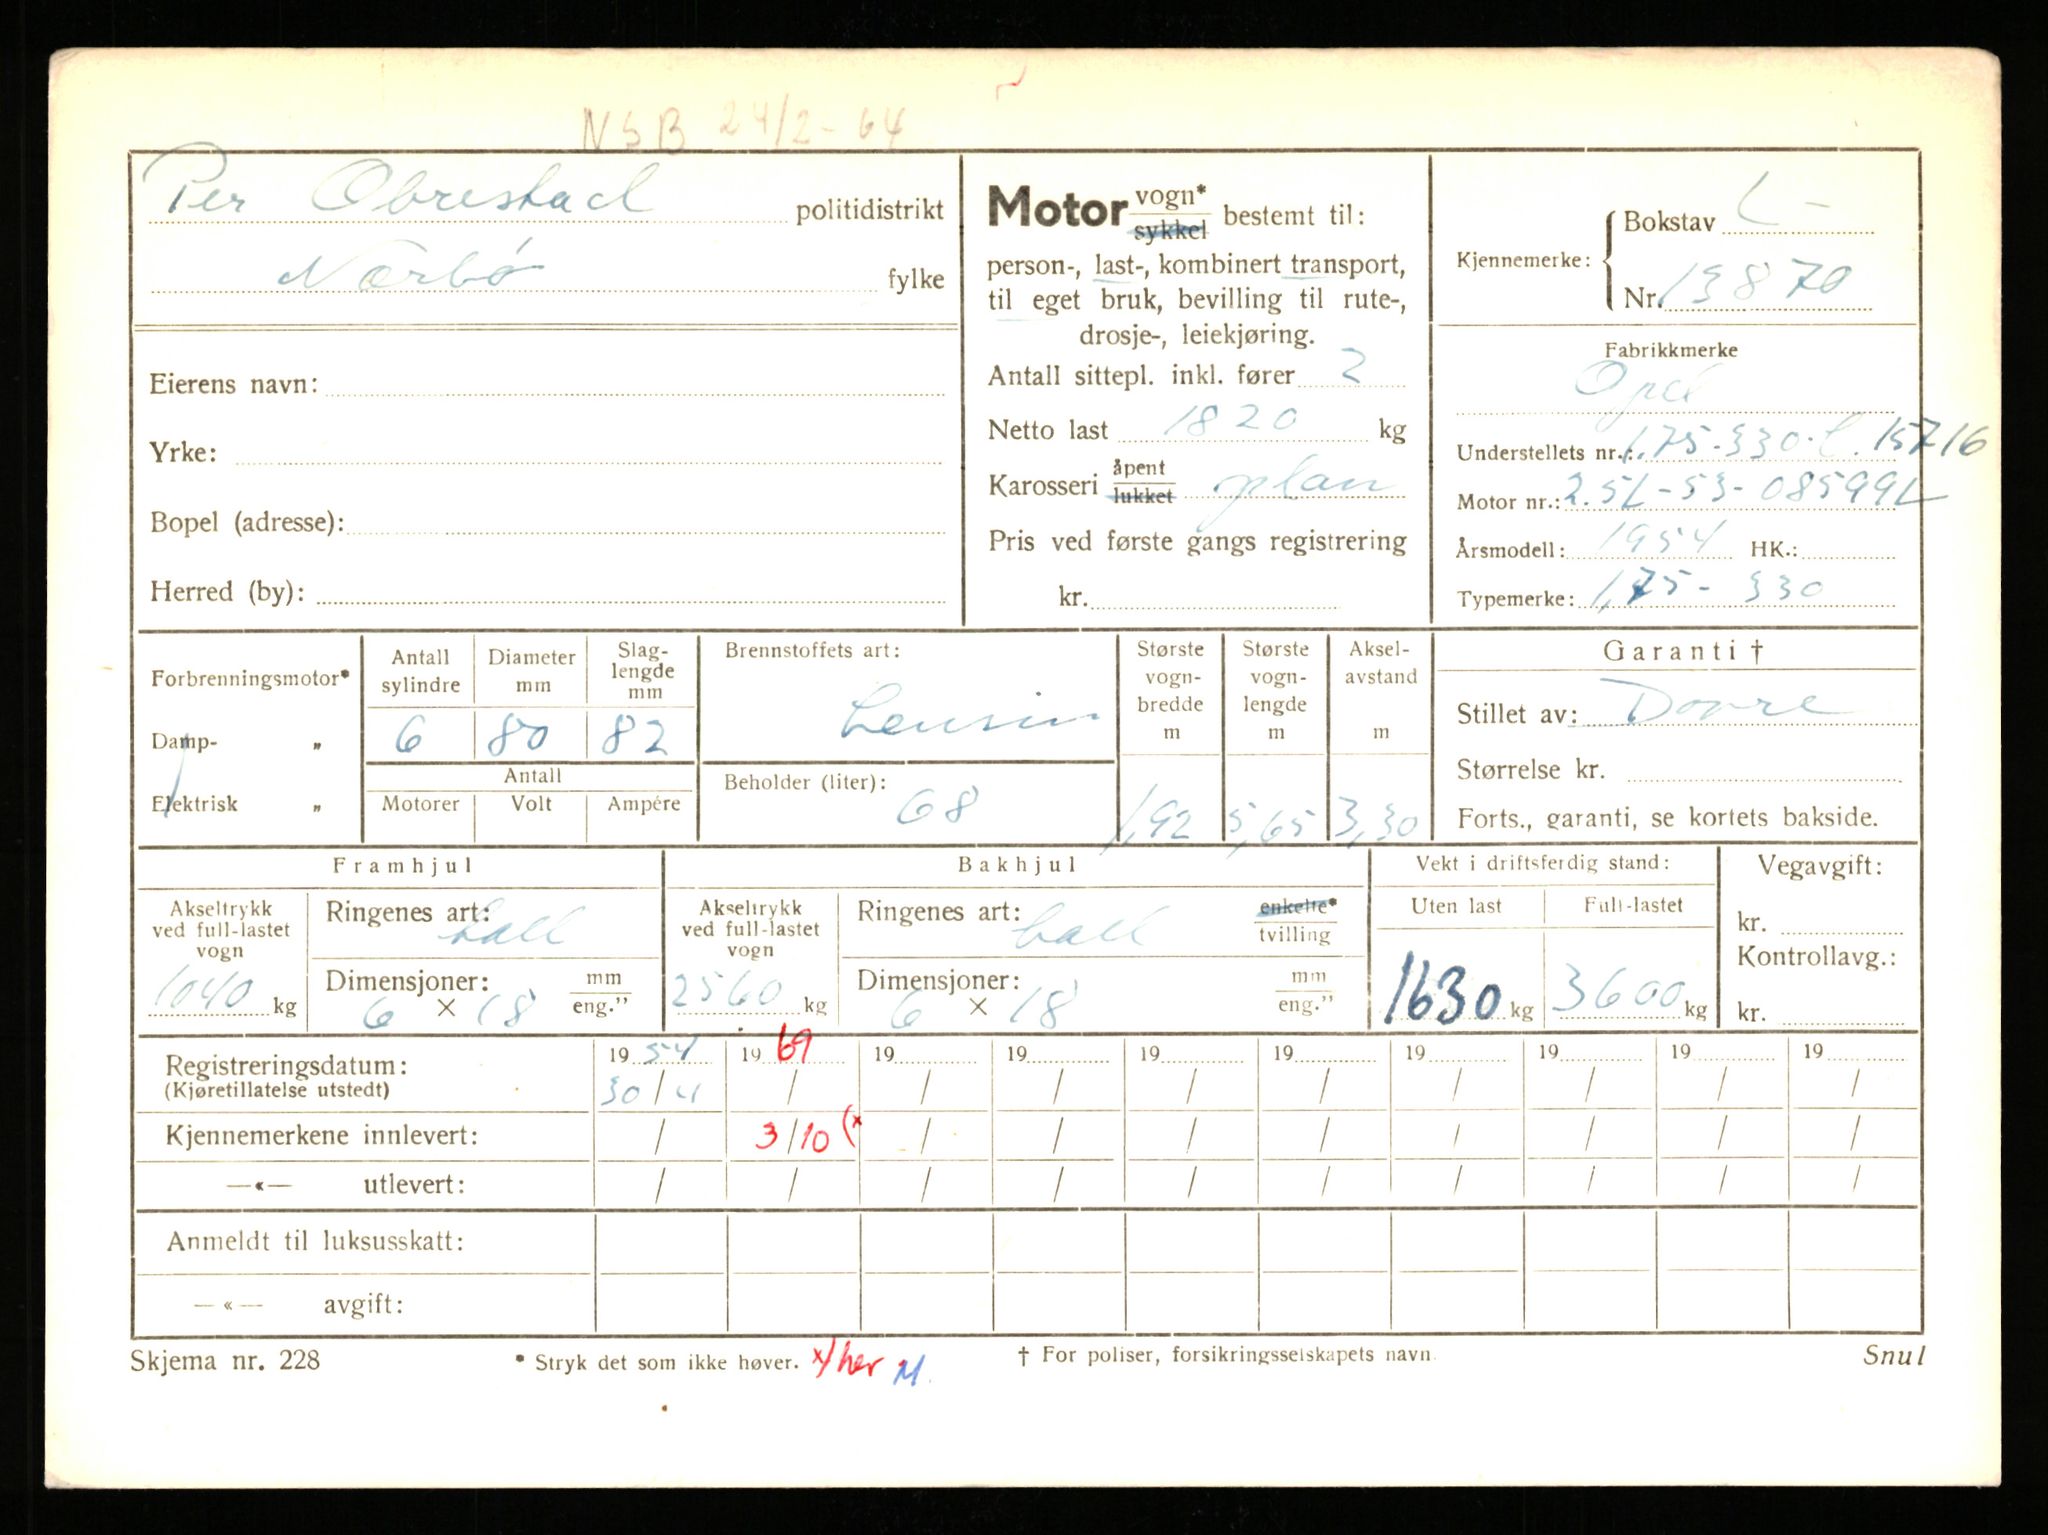 NSB 24/2-64
Per Obrestad politidistrikt
Nærbø fylke
Eierens navn:
Yrke:
Bopel (adresse):
Herred (by):
Motor vogn* sykkel bestemt til:
person-, last-, kombinert transport,
til eget bruk, bevilling til rute-,
drosje-, leiekjøring.
Antall sittepl. inkl. fører 2
Netto last 1820 kg
Karosseri åpent lukket plan
Pris ved første gangs registrering
kr.
Kjennemerke: Bokstav L-
Nr. 13870
Fabrikkmerke
Opel
Understellets nr.: 1,75-330-L.15716
Motor nr.: 2.5L-53-08599L
Årsmodell: 1954 HK.:
Typemerke: 1,75-330
Forbrenningsmotor*
Damp- „
Elektrisk „
Antall sylindre 6
Diameter mm 80
Slag-lengde mm 82
Antall
Motorer Volt Ampére
Brennstoffets art:
bensin
Beholder (liter):
68
Største vogn-bredde m 1,92
Største vogn-lengde m 5,65
Aksel-avstand m 3,30
Garanti †
Stillet av: Dovre
Størrelse kr.
Forts., garanti, se kortets bakside.
Framhjul
Akseltrykk ved full-lastet vogn 1040 kg
Ringenes art: ball
Dimensjoner: mm
6 × 18 eng.”
Bakhjul
Akseltrykk ved full-lastet vogn 2560 kg
Ringenes art: ball enkelte* tvilling
Dimensjoner: mm
6 × 18 eng.”
Vekt i driftsferdig stand:
Uten last Full-lastet
1630 kg 3600 kg
Vegavgift:
kr.
Kontrollavg.:
kr.
Registreringsdatum: 19 54 19 69 19 19 19 19 19 19 19 19
(Kjøretillatelse utstedt) 30/4 / / / / / / / / /
Kjennemerkene innlevert: / 3/10 (x / / / / / / / /
—«— utlevert: / / / / / / / / / /
Anmeldt til luksusskatt:
—«— avgift:
Skjema nr. 228 * Stryk det som ikke høver. x/her M. † For poliser, forsikringsselskapets navn. Snul